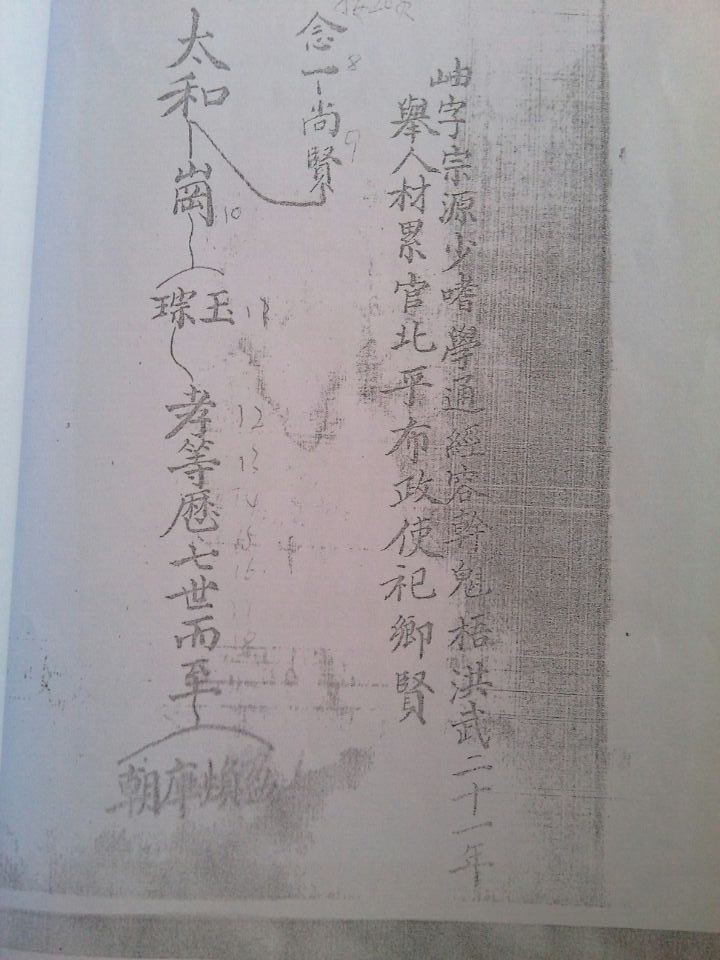 岫字宗源少嗜學通經容幹魁梧洪武二十一年
舉人材累官北平布政使祀鄉賢
念一尚賢
8
9
太和
崗
10
玉
琮
11
孝等歷七世而至
12
13
14
15
16
17
18
朝庠煥